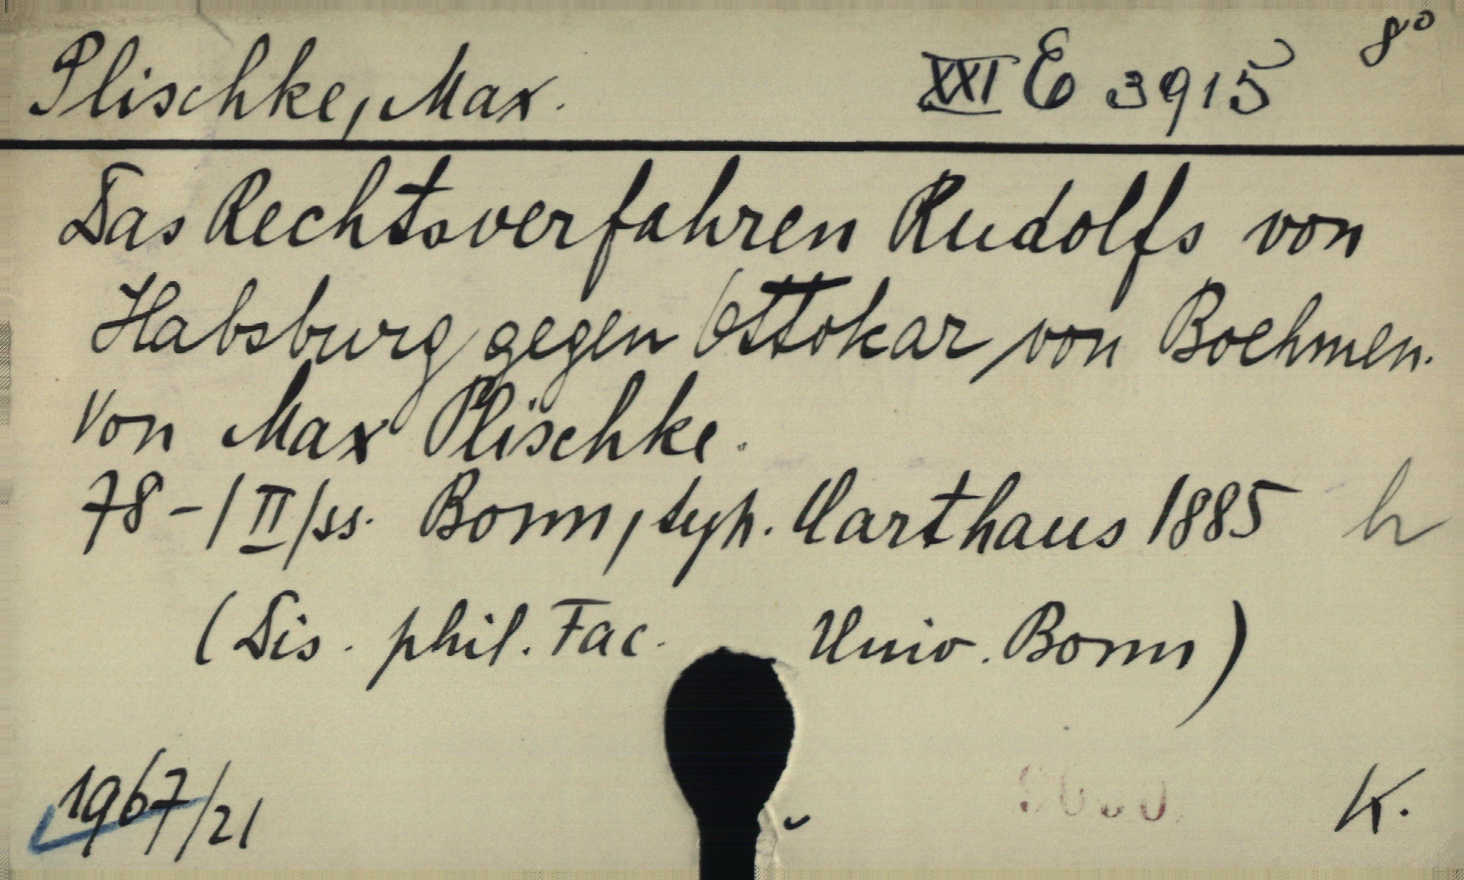 Plischke, Max. XXI E 3915 8°
Das Rechtsverfahren Rudolfs von
Habsburg gegen Ottokar von Boehmen.
Von Max Plischke.
78-/II/ss. Bonn, typ. Carthaus 1885 h
(Dis. phil. Fac. Univ. Bonn)
1967/21 K.